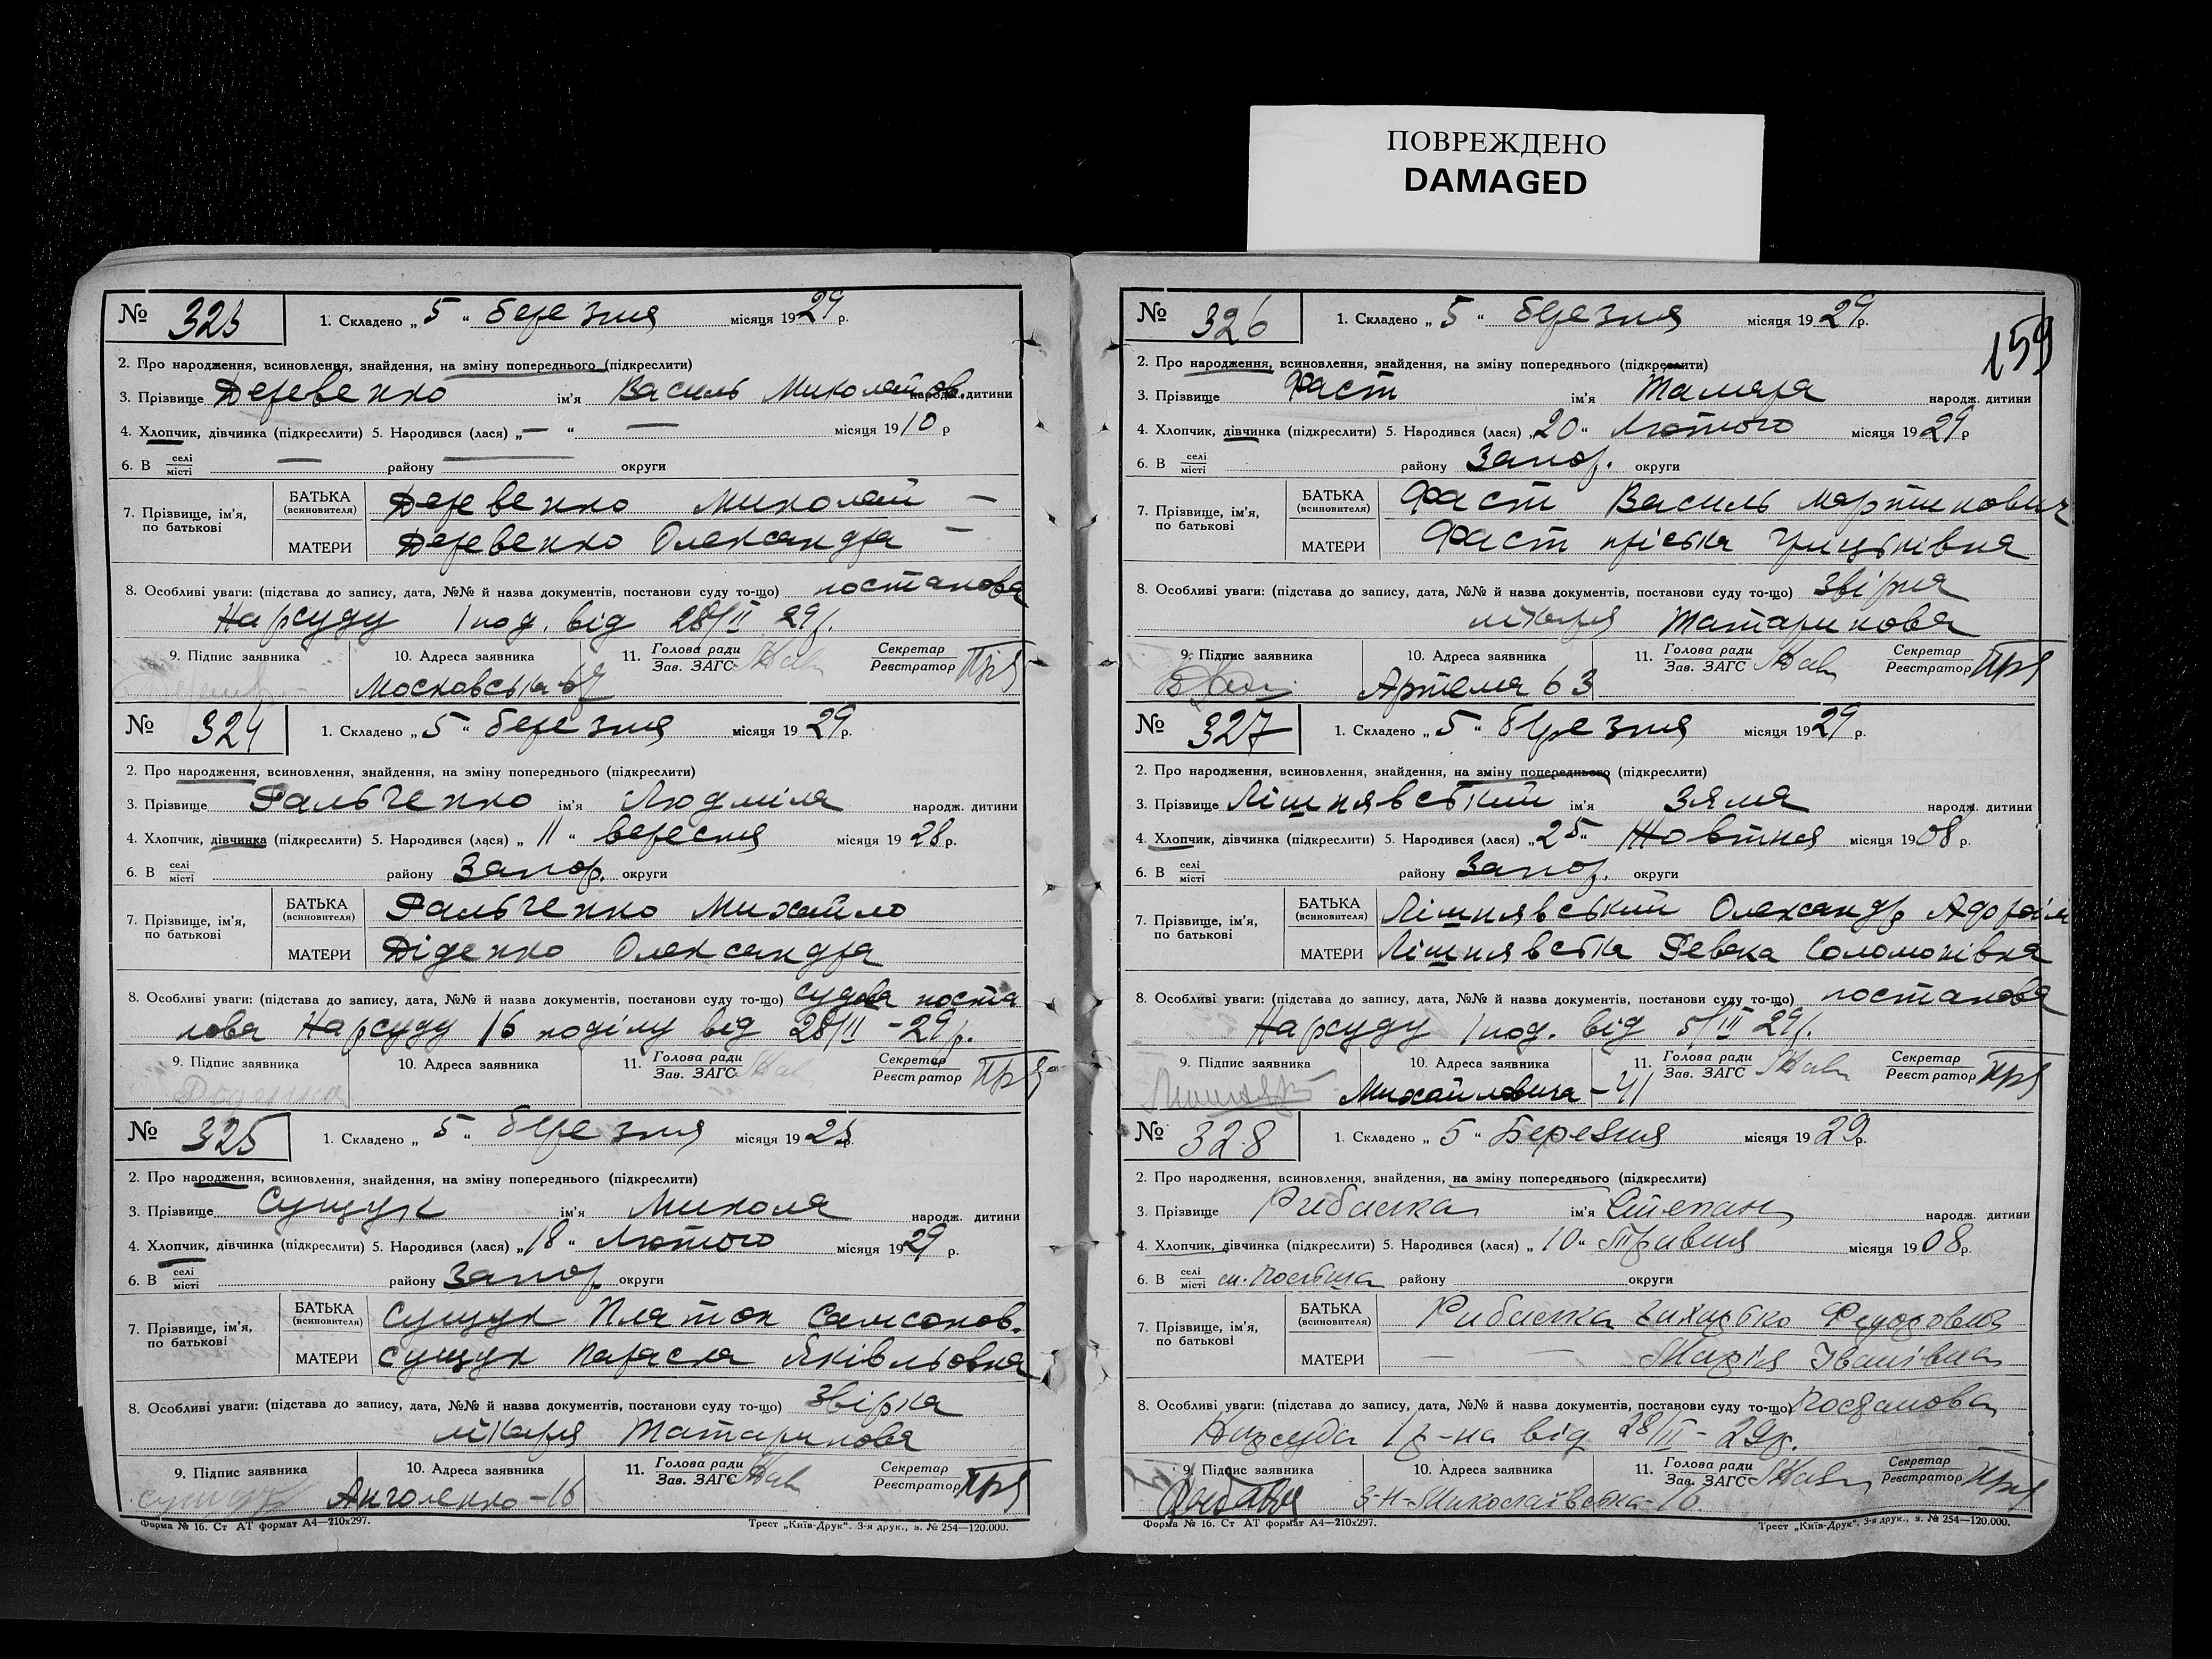 ПОВРЕЖДЕНО
DAMAGED
№ 323 1. Складено „ 5 “ березня місяця 1929 р.
2. Про народження, всиновлення, знайдення, на зміну попереднього (підкреслити)
3. Прізвище Деревенко ім'я Василь Миколайов. народж. дитини
4. Хлопчик, дівчинка (підкреслити) 5. Народився (лася) „ — “ — місяця 1910 р
6. В селі місті — району — округи
7. Прізвище, ім'я, по батькові
БАТЬКА (всиновителя) Деревенко Миколай —
МАТЕРИ Деревенко Олександра —
8. Особливі уваги: (підстава до запису, дата, №№ й назва документів, постанови суду то-що) постанова
Нарсуду 1 под. від 28/II 29р.
9. Підпис заявника 10. Адреса заявника 11. Голова ради Зав. ЗАГС Секретар Реєстратор
Московська
№ 324 1. Складено „ 5 “ березня місяця 1929 р.
2. Про народження, всиновлення, знайдення, на зміну попереднього (підкреслити)
3. Прізвище Гальченко ім'я Людміла народж. дитини
4. Хлопчик, дівчинка (підкреслити) 5. Народився (лася) „ 11 “ вересня місяця 1928 р.
6. В селі місті району Запор. округи
7. Прізвище, ім'я, по батькові
БАТЬКА (всиновителя) Гальченко Михайло
МАТЕРИ Діденко Олександра
8. Особливі уваги: (підстава до запису, дата, №№ й назва документів, постанови суду то-що) судова поста
нова Нарсуду 16 поділу від 28/II -29р.
9. Підпис заявника 10. Адреса заявника 11. Голова ради Зав. ЗАГС Секретар Реєстратор
№ 325 1. Складено „ 5 “ березня місяця 1929 р.
2. Про народження, всиновлення, знайдення, на зміну попереднього (підкреслити)
3. Прізвище Сущук ім'я Микола народж. дитини
4. Хлопчик, дівчинка (підкреслити) 5. Народився (лася) „ 18 “ Лютого місяця 1929 р.
6. В селі місті району Запор. округи
7. Прізвище, ім'я, по батькові
БАТЬКА (всиновителя) Сущук Платон Самсонов.
МАТЕРИ Сущук Параска Яківльовна
8. Особливі уваги: (підстава до запису, дата, №№ й назва документів, постанови суду то-що) звірка
лікаря Татаринова
9. Підпис заявника 10. Адреса заявника 11. Голова ради Зав. ЗАГС Секретар Реєстратор
Анголенко -16
Форма № 16. Ст АТ формат А4—210х297. Трест „Київ-Друк“. 3-я друк., з. № 254—120.000.
159
№ 326 1. Складено „ 5 “ березня місяця 1929 р.
2. Про народження, всиновлення, знайдення, на зміну попереднього (підкреслити)
3. Прізвище Фаст ім'я Тамара народж. дитини
4. Хлопчик, дівчинка (підкреслити) 5. Народився (лася) „ 20 “ Лютого місяця 1929 р
6. В селі місті району Запор. округи
7. Прізвище, ім'я, по батькові
БАТЬКА (всиновителя) Фаст Василь Мартинович
МАТЕРИ Фаст Пріська Грицьківна
8. Особливі уваги: (підстава до запису, дата, №№ й назва документів, постанови суду то-що) звірка
лікаря Татаринова
9. Підпис заявника 10. Адреса заявника 11. Голова ради Зав. ЗАГС Секретар Реєстратор
Артема 63
№ 327 1. Складено „ 5 “ березня місяця 1929 р.
2. Про народження, всиновлення, знайдення, на зміну попереднього (підкреслити)
3. Прізвище Лішнявський ім'я Зяма народж. дитини
4. Хлопчик, дівчинка (підкреслити) 5. Народився (лася) „ 25 “ Жовтня місяця 1908 р.
6. В селі місті району Запор. округи
7. Прізвище, ім'я, по батькові
БАТЬКА (всиновителя) Лішнявський Олександр
МАТЕРИ Лішнявська Ревека Соломонівна
8. Особливі уваги: (підстава до запису, дата, №№ й назва документів, постанови суду то-що) постанова
Нарсуду 1 под. від 5/III 29р.
9. Підпис заявника 10. Адреса заявника 11. Голова ради Зав. ЗАГС Секретар Реєстратор
Михайловича -41
№ 328 1. Складено „ 5 “ Березня місяця 1929 р.
2. Про народження, всиновлення, знайдення, на зміну попереднього (підкреслити)
3. Прізвище Рибалка ім'я Степан народж. дитини
4. Хлопчик, дівчинка (підкреслити) 5. Народився (лася) „ 10 “ Травня місяця 1908 р.
6. В селі місті району округи
7. Прізвище, ім'я, по батькові
БАТЬКА (всиновителя) Рибалка
МАТЕРИ — — Марія Іванівна
8. Особливі уваги: (підстава до запису, дата, №№ й назва документів, постанови суду то-що) Постанова
Нарсуда 1 р-на від 28/II - 29р.
9. Підпис заявника 10. Адреса заявника 11. Голова ради Зав. ЗАГС Секретар Реєстратор
3-Н-Миколаївська-16.
Форма № 16. Ст АТ формат А4—210х297. Трест „Київ-Друк“. 3-я друк., з. № 254—120.000.